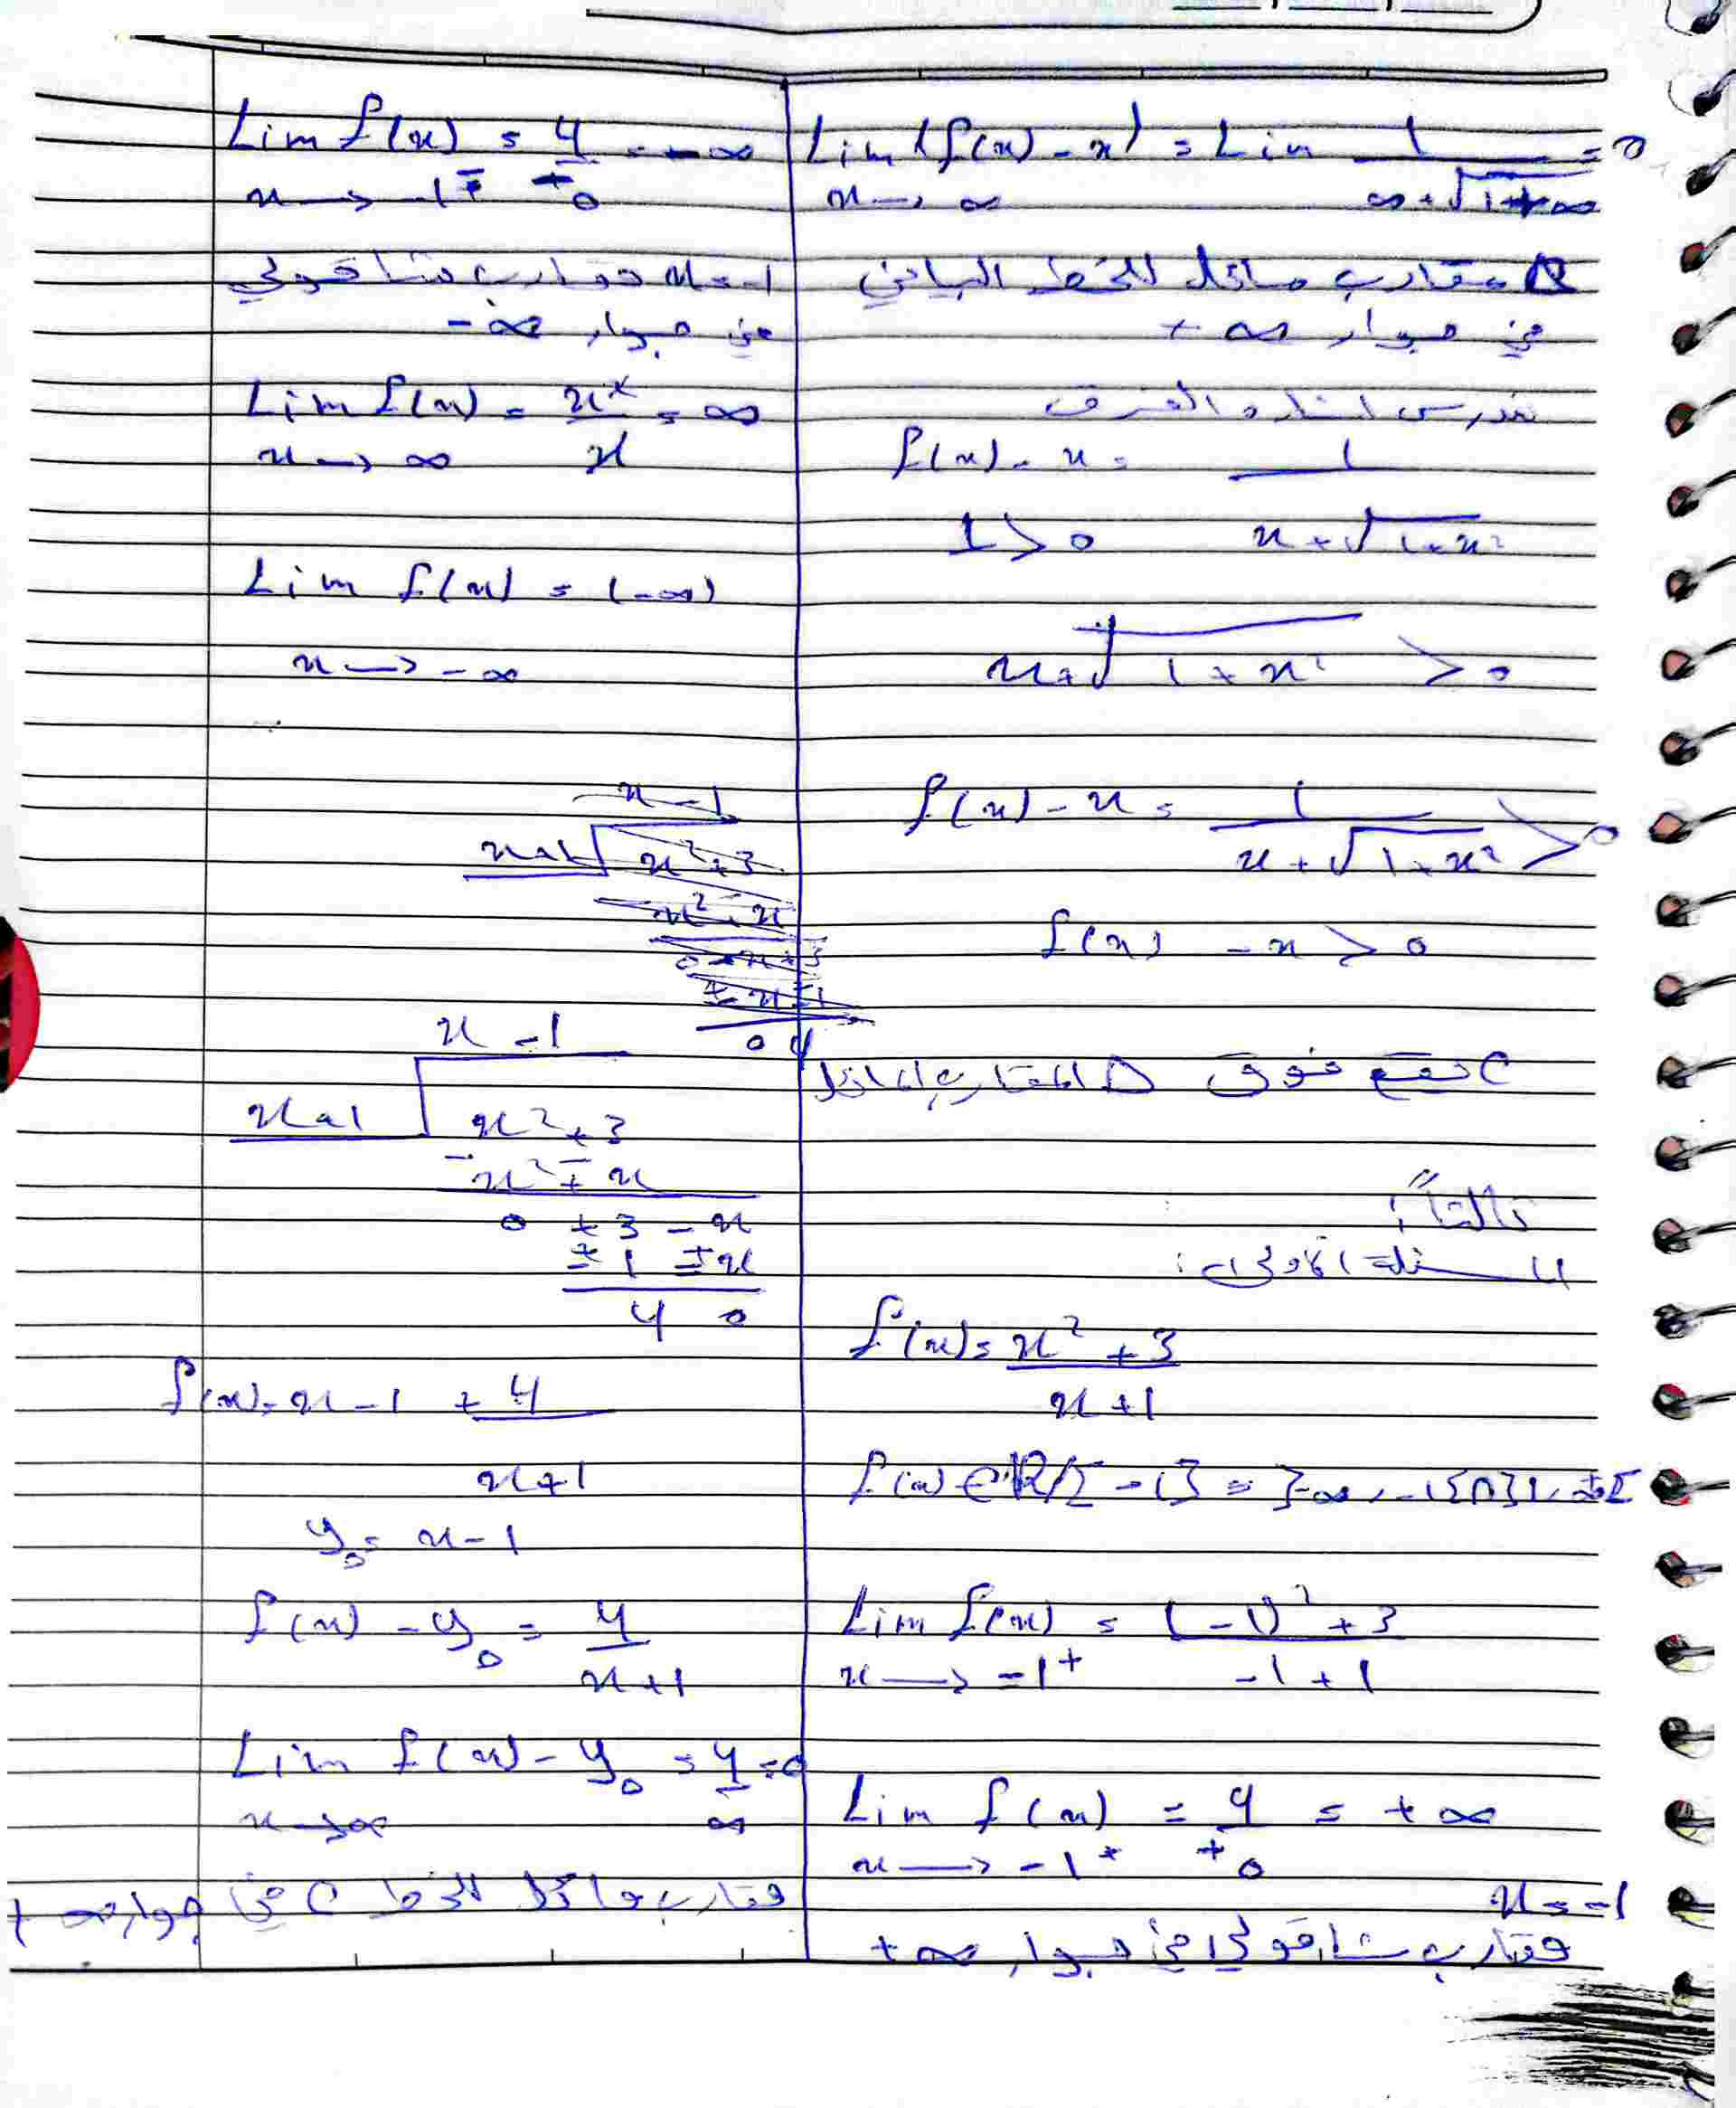 Lim (f(x) - x) = Lim 1/(∞+√(1+∞)) = 0
x → ∞
Δ مقارب مائل للخط البياني
في جوار +∞
ندرس اشارة الفرق
f(x) - x = 1/(x+√(1+x²))
1 > 0
x+√(1+x²) > 0
f(x) - x = 1/(x+√(1+x²)) > 0
f(x) - x > 0
C تقع فوق Δ المقارب المائل
ثالثاً:
المسألة الأولى:
f(x) = (x²+3)/(x+1)
f(x) ∈ R/{-1} = ]-∞, -1[∩]1, +∞[
Lim f(x) = ((-1)²+3)/(-1+1)
x → -1⁺
Lim f(x) = 4/+0 = +∞
x → -1⁺
x = -1
مقارب شاقولي في جوار +∞
Lim f(x) = 4/-0 = -∞
x → -1⁻
x = -1 مقارب شاقولي
في جوار -∞
Lim f(x) = x²/x = ∞
x → ∞
Lim f(x) = (-∞)
x → -∞
x - 1
x+1 √ x²+3
x - 1
x+1 x²+3
-x² ∓ x
0 + 3 - x
± 1 ± x
4 0
f(x) = x - 1 + 4/(x+1)
y₀ = x - 1
f(x) - y₀ = 4/(x+1)
Lim f(x) - y₀ = 4/∞ = 0
x → ∞
مقارب مائل للخط C في جوار +∞